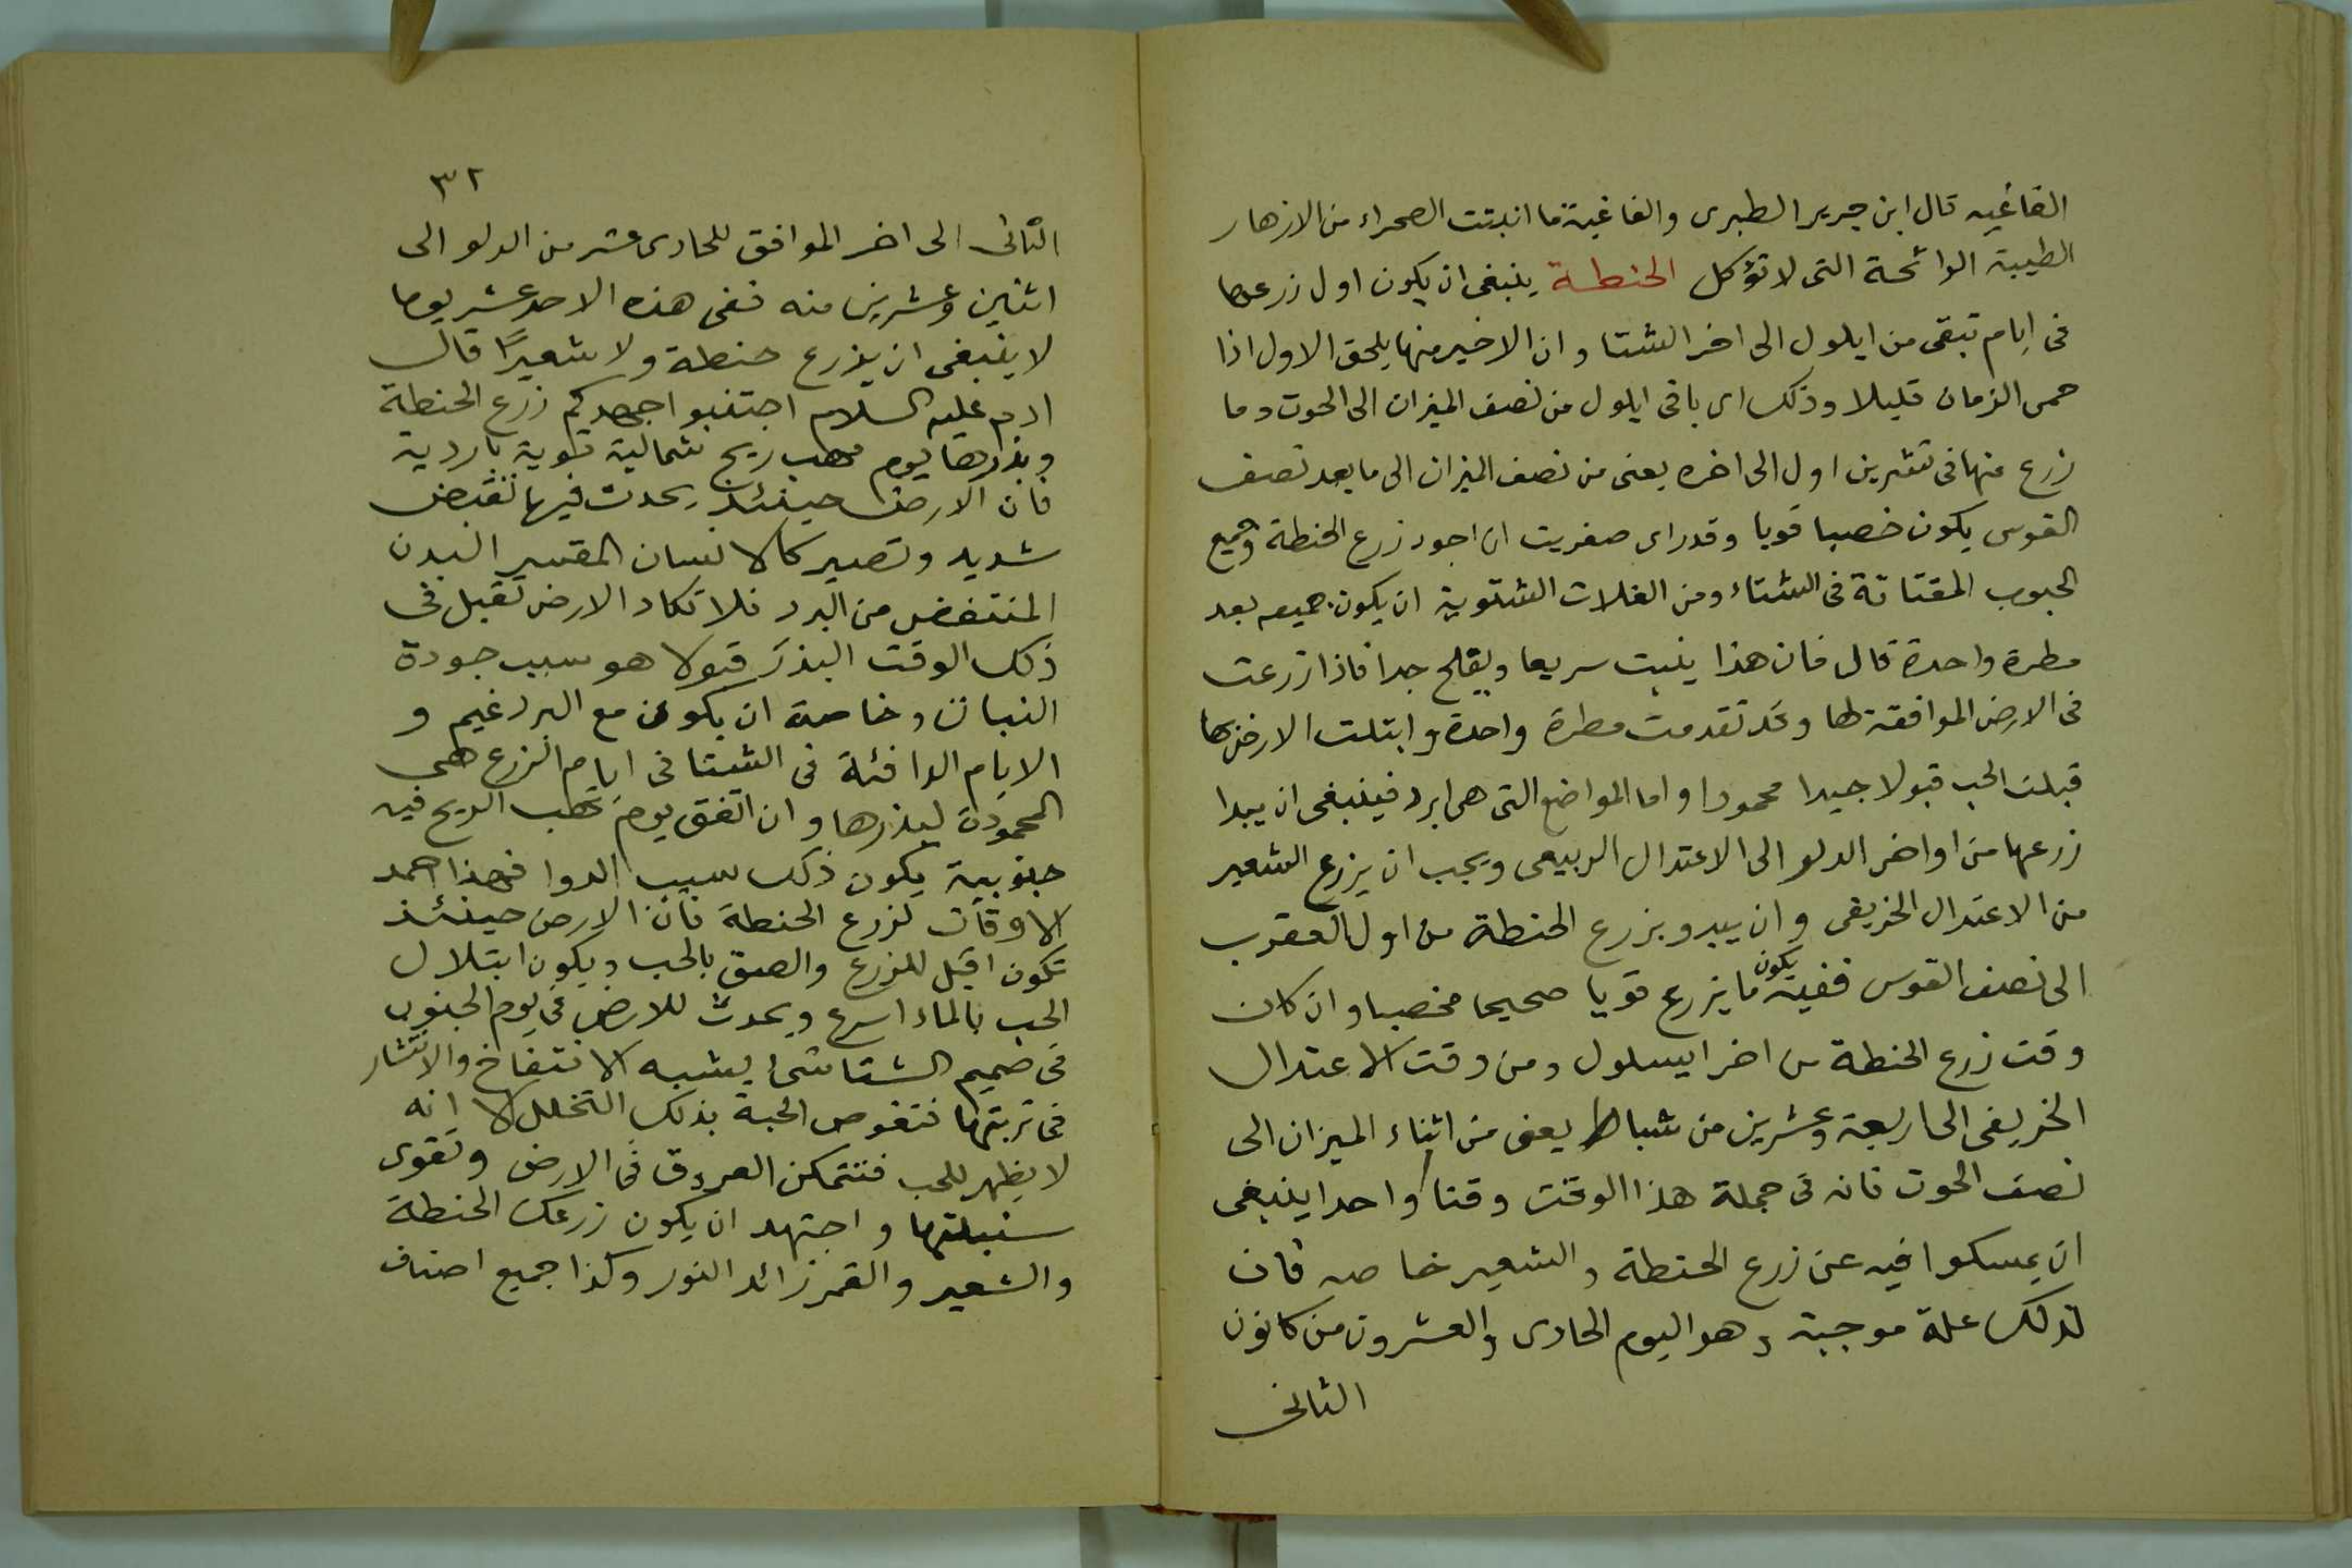 الفاغيه قال ابن جرير الطبرى والفاغية ما انبتت الصحراء من الازهار
الطيبة الرائحة التى لا تؤكل الحنطة ينبغى ان يكون اول زرعها
فى ايام تبقى من ايلول الى اخر الشتا وان الاخير منها يلحق الاول اذا
حمى الزمان قليلا وذلك اى باقى ايلول من نصف الميزان الى الحوت وما
زرع منها فى تشرين اول الى اخره يعنى من نصف الميزان الى ما بعد نصف
القوس يكون خصبا قويا وقد راى صغريت ان اجود زرع الحنطة وجميع
الحبوب المقتاتة فى الشتاء ومن الغلات الشتوية ان يكون جميعه بعد
مطرة واحدة قال فان هذا ينبت سريعا ويفلح جدا فاذا زرعت
فى الارض الموافقة لها وقد تقدمت مطرة واحدة وابتلت الارض بها
قبلت الحب قبولا جيدا محمودا واما المواضع التى هى ابرد فينبغى ان يبدا
زرعها من اواخر الدلو الى الاعتدال الربيعى ويجب ان يزرع الشعير
من الاعتدال الخريفى وان يبدو بزرع الحنطة من اول العقرب
الى نصف القوس ففيه يكون ما يزرع قويا صحيحا مخصبا وان كان
وقت زرع الحنطة من اخر ايسلول ومن وقت الاعتدال
الخريفى الى اربعة وعشرين من شباط يعنى من اثناء الميزان الى
نصف الحوت فانه فى جملة هذا الوقت وقتا واحدا ينبغى
ان يمسكوا فيه عن زرع الحنطة والشعير خاصه فان
لذلك علة موجبة وهو اليوم الحادى والعشرون من كانون
الثانى
٣٢
الثانى الى اخر الموافق للحادى عشر من الدلو الى
اثنين وعشرين منه ففى هذه الاحد عشر يوما
لا ينبغى ان يزرع حنطة ولا شعيرًا قال
ادم عليه السلام اجتنبوا جهدكم زرع الحنطة
وبذرها يوم مهب ريح شمالية قوية باردية
فان الارض حينئذ يحدث فيها تقبض
شديد وتصير كالانسان المقسر البدن
المنتفض من البرد فلا تكاد الارض تقبل فى
ذلك الوقت البذر قبولا هو سبب جودة
النبات وخاصة ان يكون مع البرد غيم و
الايام الدافئة فى الشتا فى ايام الزرع هى
المحمودة لبذرها وان اتفق يوم تهب الريح فيه
جنوبية يكون ذلك سبب الدوا فهذا احمد
الاوقات لزرع الحنطة فان الارض حينئذ
تكون اقبل للزرع والصق بالحب ويكون ابتلال
الحب بالماء اسرع ويحدث للارض فى يوم الجنوب
فى صميم الشتا شئ يشبه الانتفاخ والانتشار
فى تربتها فتغوص الحبة بذلك التخلل الا انه
لا يظهر للحب فتتمكن العروق فى الارض وتقوى
سنبلتها واجتهد ان يكون زرعك الحنطة
والشعير والقمر زائد النور وكذا جميع اصناف